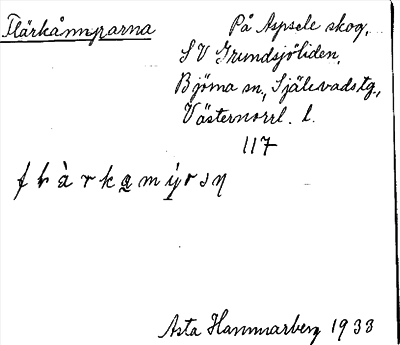 Flärkåmyrarna
På Aspsele skog,
SV Grundsjöliden,
Björna sn, Själevadstg.,
Västernorrl. l.
117
Asta Hammarberg 1933